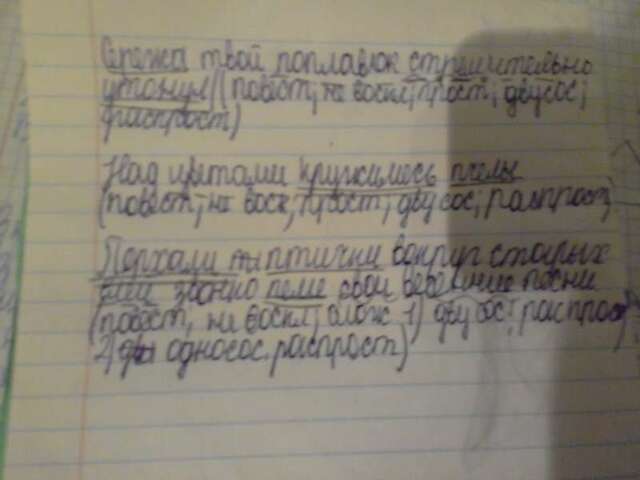 Сережа твой поплавок стремительно
утонул (повест, не воскл, прост, двусос,
распрост)
Над цветами кружились пчелы
(повест, не воск, прост, двусос, распрост)
Порхали птички вокруг старых
звонко пели свои весенние песни
(повест, не воскл, слож 1) двусос. распрост
2) односос. распрост)